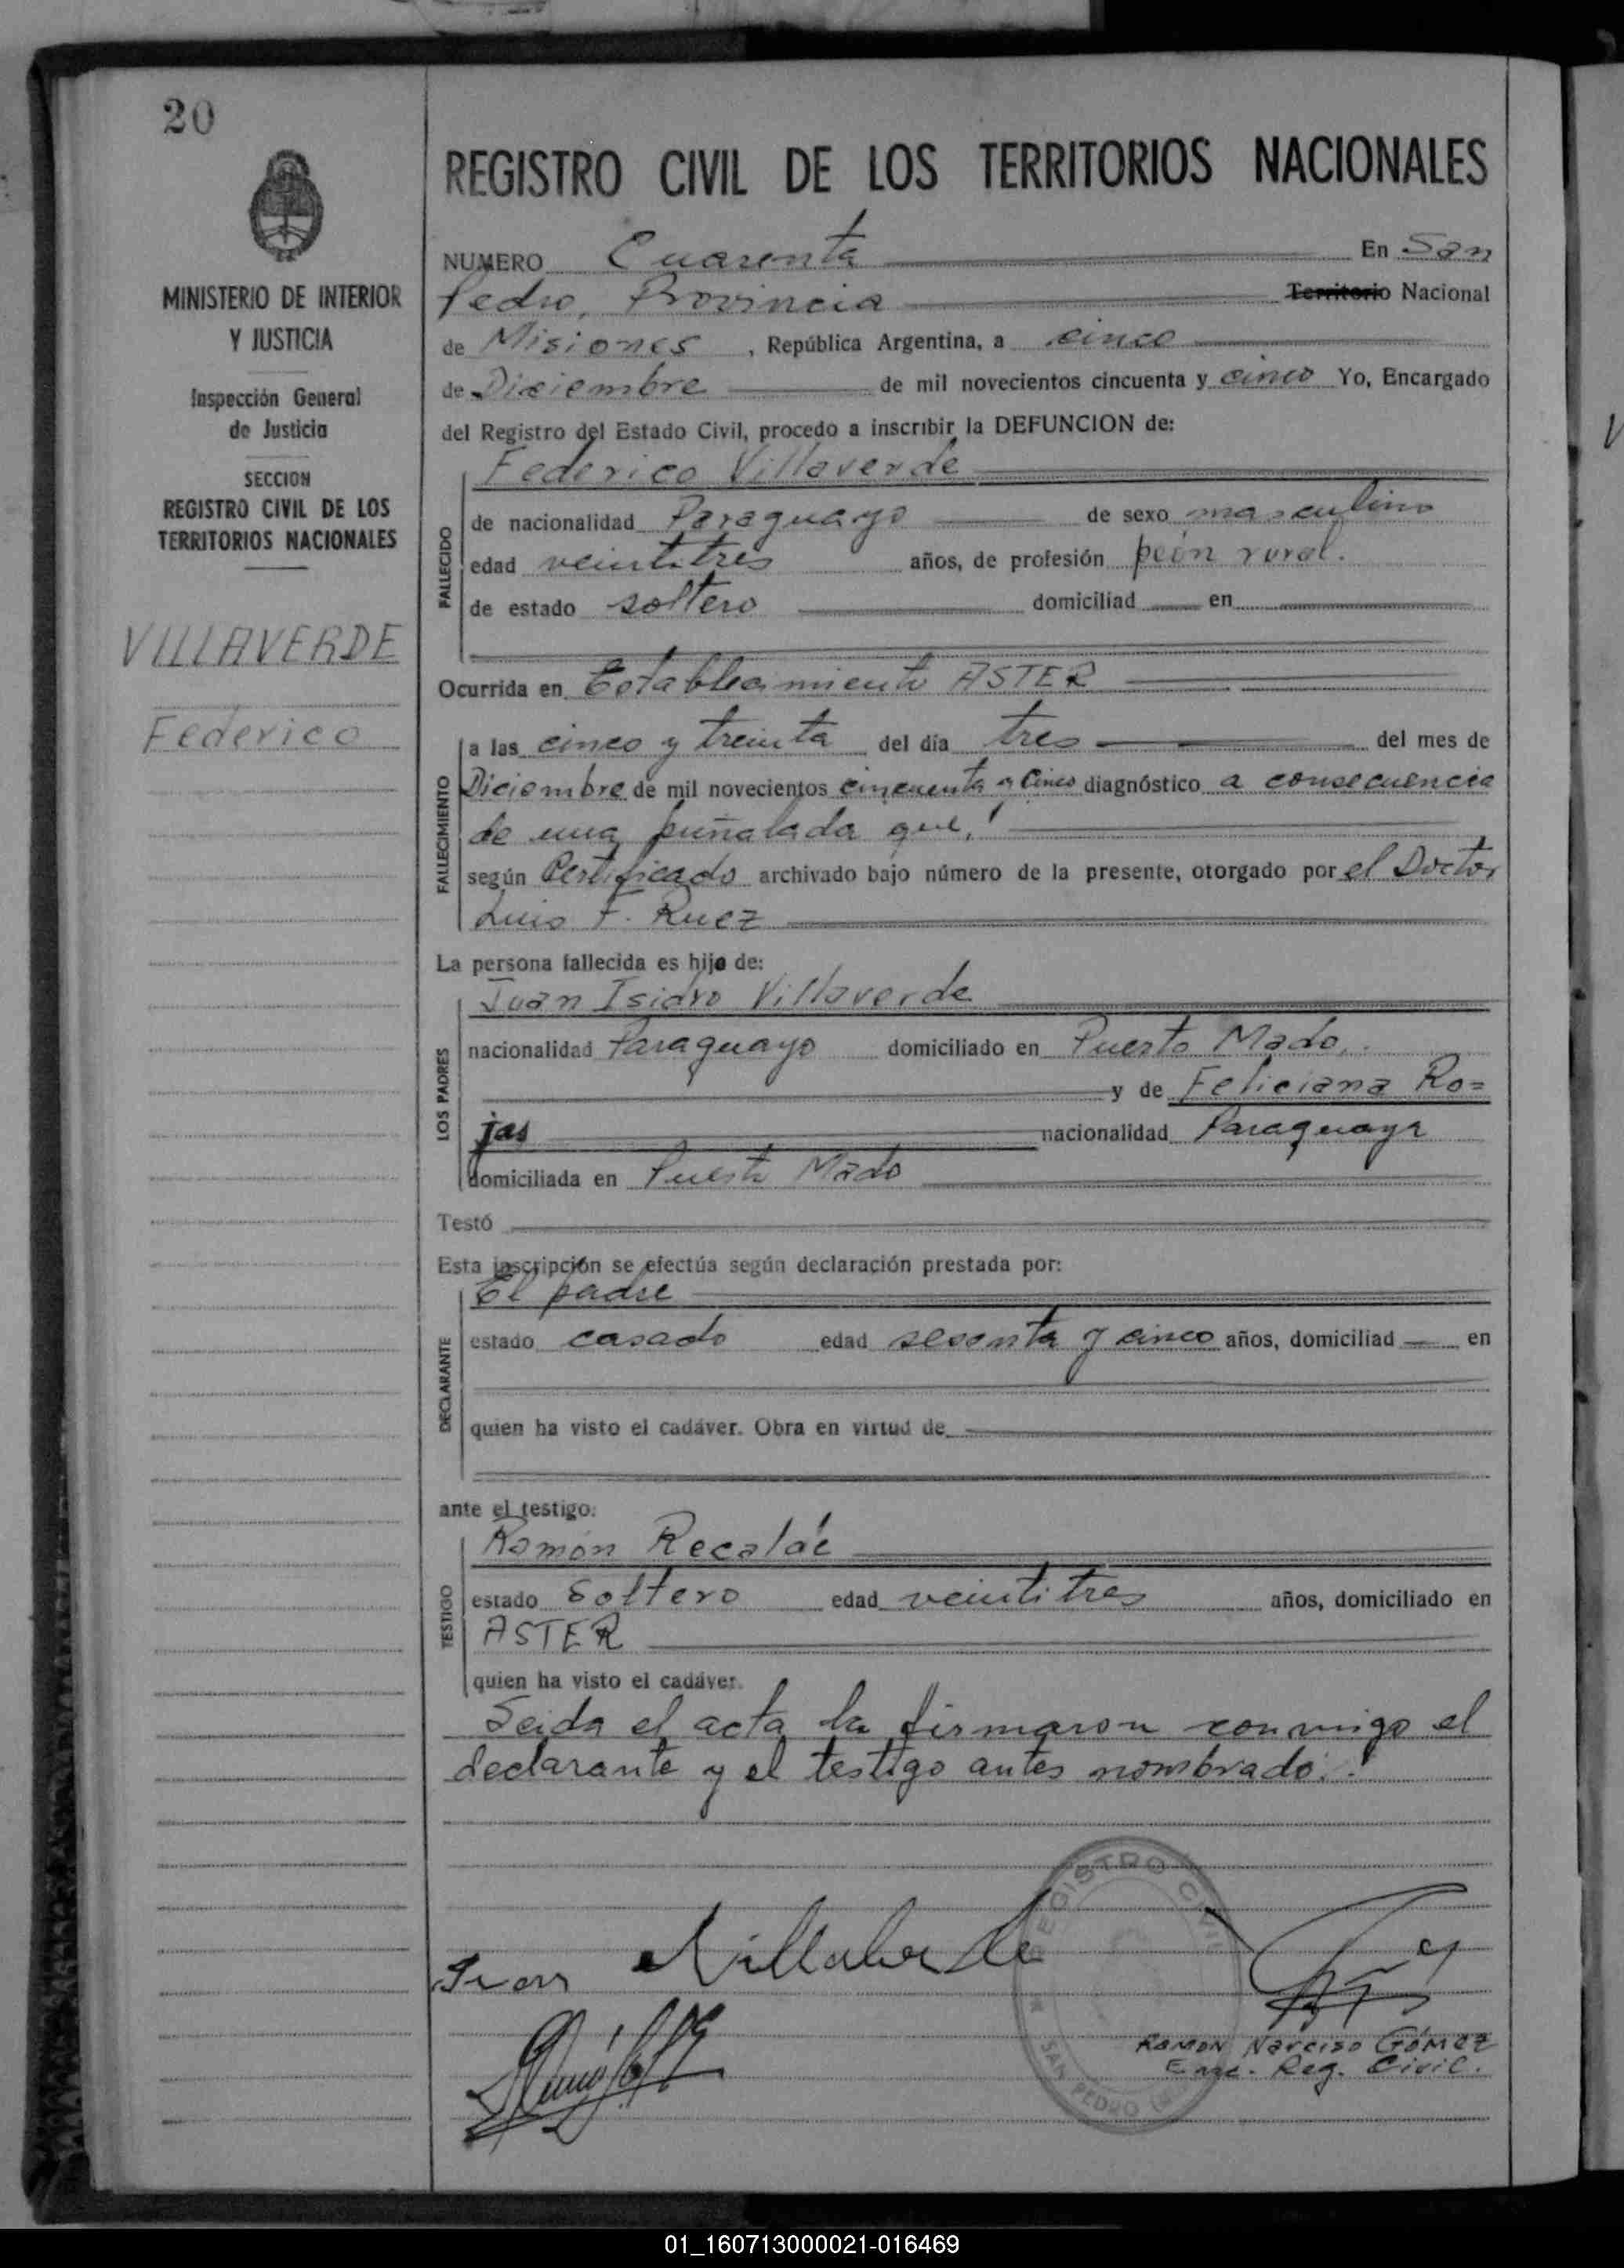 20
MINISTERIO DE INTERIOR
Y JUSTICIA
Inspección General
de Justicia
SECCION
REGISTRO CIVIL DE LOS
TERRITORIOS NACIONALES
VILLAVERDE
Federico
REGISTRO CIVIL DE LOS TERRITORIOS NACIONALES
NUMERO Cuarenta En San
Pedro, Provincia Territorio Nacional
de Misiones, República Argentina, a cinco
de Diciembre de mil novecientos cincuenta y cinco Yo, Encargado
del Registro del Estado Civil, procedo a inscribir la DEFUNCION de:
Federico Villaverde
FALLECIDO
de nacionalidad Paraguayo de sexo masculino
edad veintitres años, de profesión peón rural.
de estado soltero domiciliad en
Ocurrida en Establecimiento ASTER
FALLECIMIENTO
a las cinco y treinta del día tres del mes de
Diciembre de mil novecientos cincuenta y cinco diagnóstico a consecuencia
de una puñalada que,
según Certificado archivado bajo número de la presente, otorgado por el Doctor
Luis F. Ruez
La persona fallecida es hijo de:
Juan Isidro Villaverde
LOS PADRES
nacionalidad Paraguayo domiciliado en Puerto Mado,
y de Feliciana Ro=
jas nacionalidad Paraguaya
domiciliada en Puerto Mado
Testó
Esta inscripción se efectúa según declaración prestada por:
El padre
DECLARANTE
estado casado edad sesenta y cinco años, domiciliad en
quien ha visto el cadáver. Obra en virtud de
ante el testigo:
Ramón Recalde
TESTIGO
estado Soltero edad veintitres años, domiciliado en
ASTER
quien ha visto el cadáver.
Leida el acta la firmaron conmigo el
declarante y el testigo antes nombrado.
Juan Villalverde
REGISTRO CIVIL
SAN PEDRO
RAMON Narciso GÓMEZ
Enc. Reg. Civil.
01_160713000021-016469